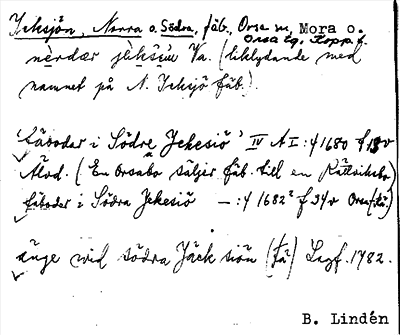 Jeksjön, Norra o. Södra, fäb., Orse sn, Mora o.
Orsa tg, Kopp. l.
nèrdær jèkšœ́n Va. (liklydande med
namnet på N. Jeksjö fäb.)
fäbodar i Södre Jekesiö IV A I:4 1680 f 13v
Älvd. (En Orsabo säljer fäb. till en Rättviksbo)
fäboder i Södra Jekesiö — :4 1682² f 34v Orsa (tä)
änge wid södra Jäck siön (fä) Lagf. 1782.
B. Lindén